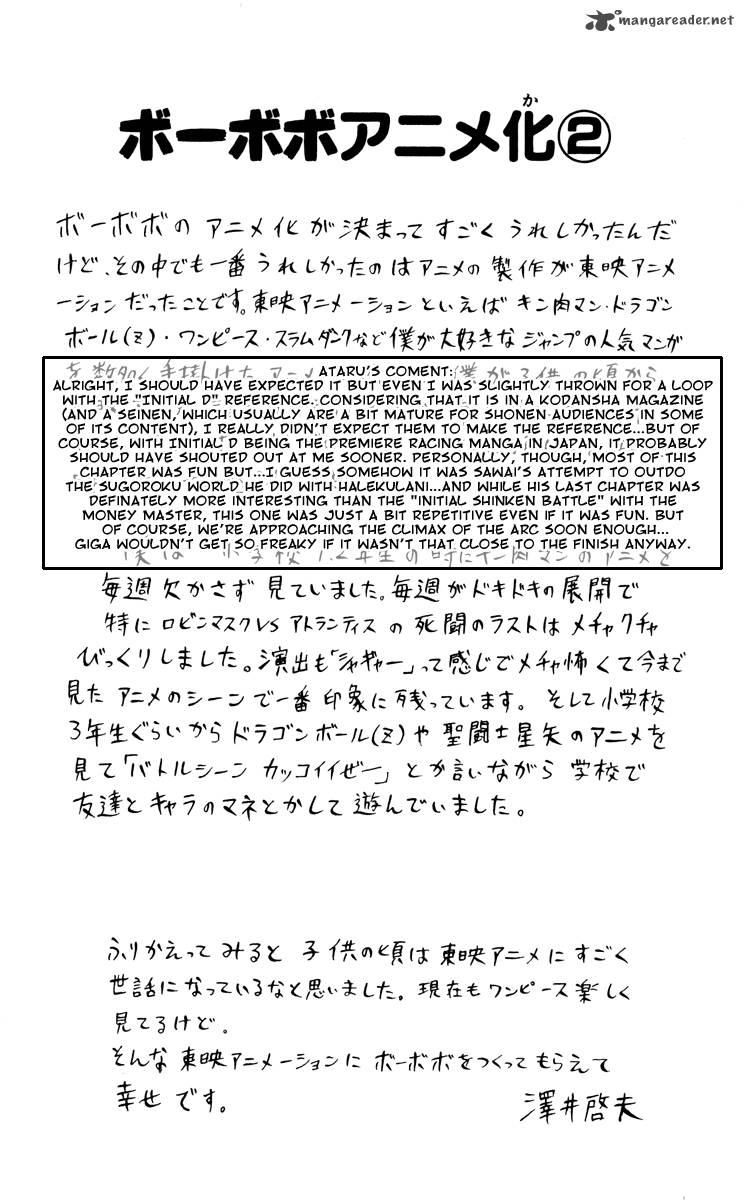 mangareader.net
か
ボーボボアニメ化②
ボーボボの アニメ化が決まって すごく うれしかったんだ
けど、その中でも一番うれしかったのはアニメの製作が東映アニメ
ーションだったことです。東映アニメーションといえば キン肉マン・ドラゴン
ボール(Z)・ワンピース・スラムダンクなど僕が大好きなジャンプの人気マンガ
を数多く手掛けたアニメ 僕が子供の頃から
ATARU'S COMENT:
ALRIGHT, I SHOULD HAVE EXPECTED IT BUT EVEN I WAS SLIGHTLY THROWN FOR A LOOP
WITH THE "INITIAL D" REFERENCE. CONSIDERING THAT IT IS IN A KODANSHA MAGAZINE
(AND A SEINEN, WHICH USUALLY ARE A BIT MATURE FOR SHONEN AUDIENCES IN SOME
OF ITS CONTENT), I REALLY DIDN'T EXPECT THEM TO MAKE THE REFERENCE...BUT OF
COURSE, WITH INITIAL D BEING THE PREMIERE RACING MANGA IN JAPAN, IT PROBABLY
SHOULD HAVE SHOUTED OUT AT ME SOONER. PERSONALLY, THOUGH, MOST OF THIS
CHAPTER WAS FUN BUT...I GUESS SOMEHOW IT WAS SAWAI'S ATTEMPT TO OUTDO
THE SUGOROKU WORLD HE DID WITH HALEKULANI...AND WHILE HIS LAST CHAPTER WAS
DEFINATELY MORE INTERESTING THAN THE "INITIAL SHINKEN BATTLE" WITH THE
MONEY MASTER, THIS ONE WAS JUST A BIT REPETITIVE EVEN IF IT WAS FUN. BUT
OF COURSE, WE'RE APPROACHING THE CLIMAX OF THE ARC SOON ENOUGH...
GIGA WOULDN'T GET SO FREAKY IF IT WASN'T THAT CLOSE TO THE FINISH ANYWAY.
僕は 小学校1.2年生の時にキン肉マンのアニメを
毎週欠かさず見ていました。毎週がドキドキの展開で
特に ロビンマスクVSアトランティスの死闘のラストはメチャクチャ
びっくりしました。演出も「シャギャー」って感じでメチャ怖くて今まで
見たアニメのシーンで一番印象に残っています。そして小学校
3年生ぐらいからドラゴンボール(Z)や聖闘士星矢のアニメを
見て「バトルシーン カッコイイぜー」とか言いながら学校で
友達とキャラのマネとかして遊んでいました。
ふりかえってみると子供の頃は東映アニメにすごく
世話になっているなと思いました。現在もワンピース楽しく
見てるけど。
そんな東映アニメーションにボーボボをつくってもらえて
幸せです。
澤井啓夫